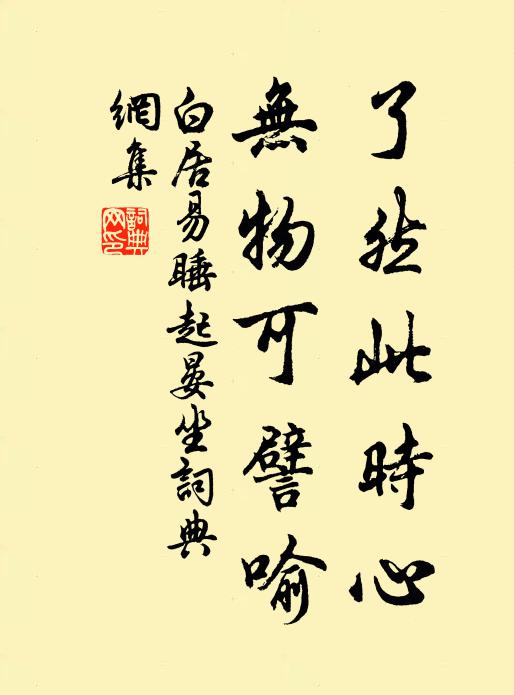 了然此時心
無物可譬喻
白居易睡起晏坐詞典
網集
詞典網印